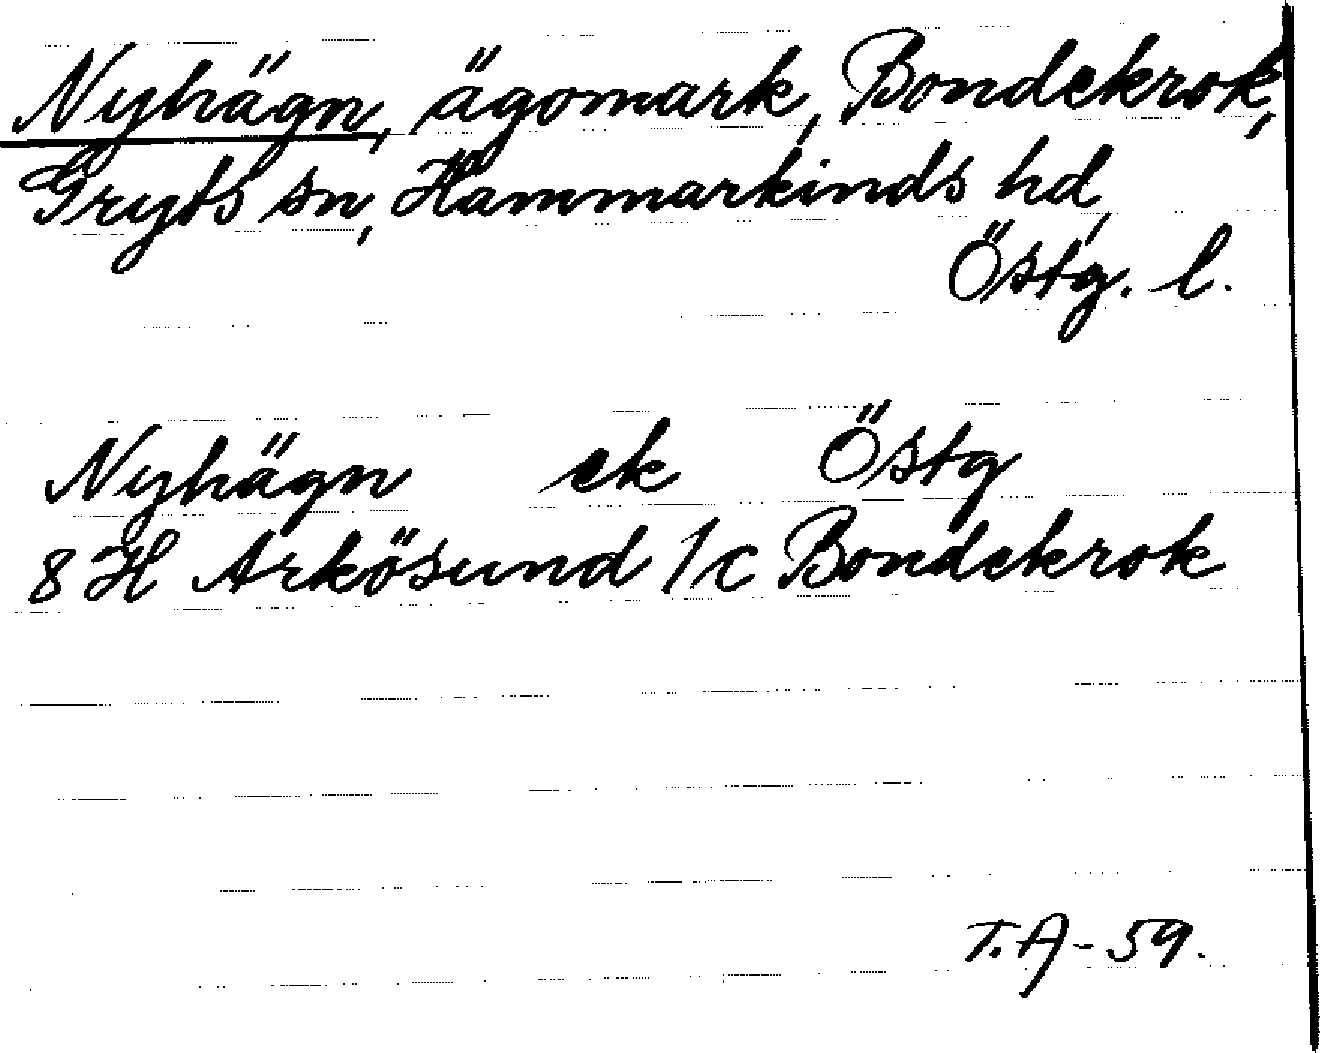 Nyhägn, ägomark, Bondekrok,
Gryts sn, Hammarkinds hd,
Östg. l.
Nyhägn ek Östg
8 H Arkösund 1/c Bondekrok
T.A-59.